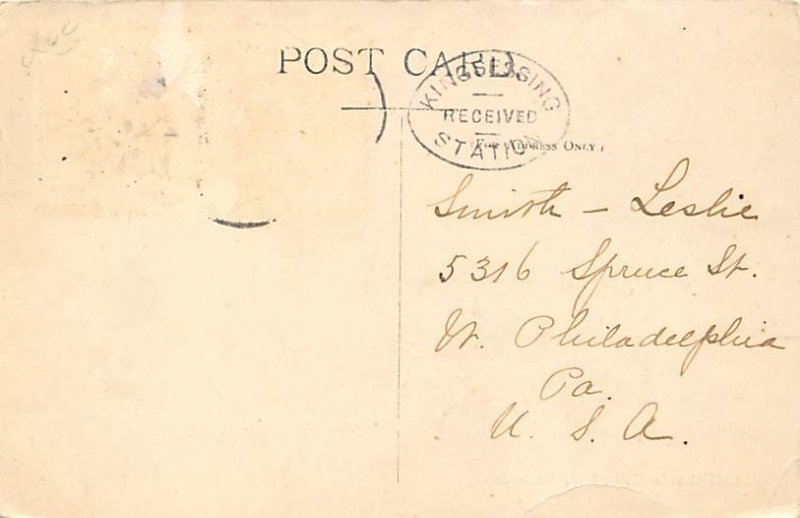 POST CARD.
KINGSESSING
RECEIVED
STATION
(FOR ADDRESS ONLY.)
Smith - Leslie
5316 Spruce St.
W. Philadelphia
Pa.
U. S. A.